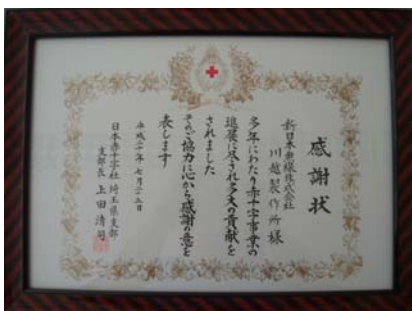 感謝状
新日本無線株式会社
川越製作所様
多年にわたり赤十字事業の
進展に尽され多大の貢献を
されました
そのご協力に心から感謝の意を
表します
平成二十年七月二十五日
日本赤十字社埼玉県支部
支部長 上田清司